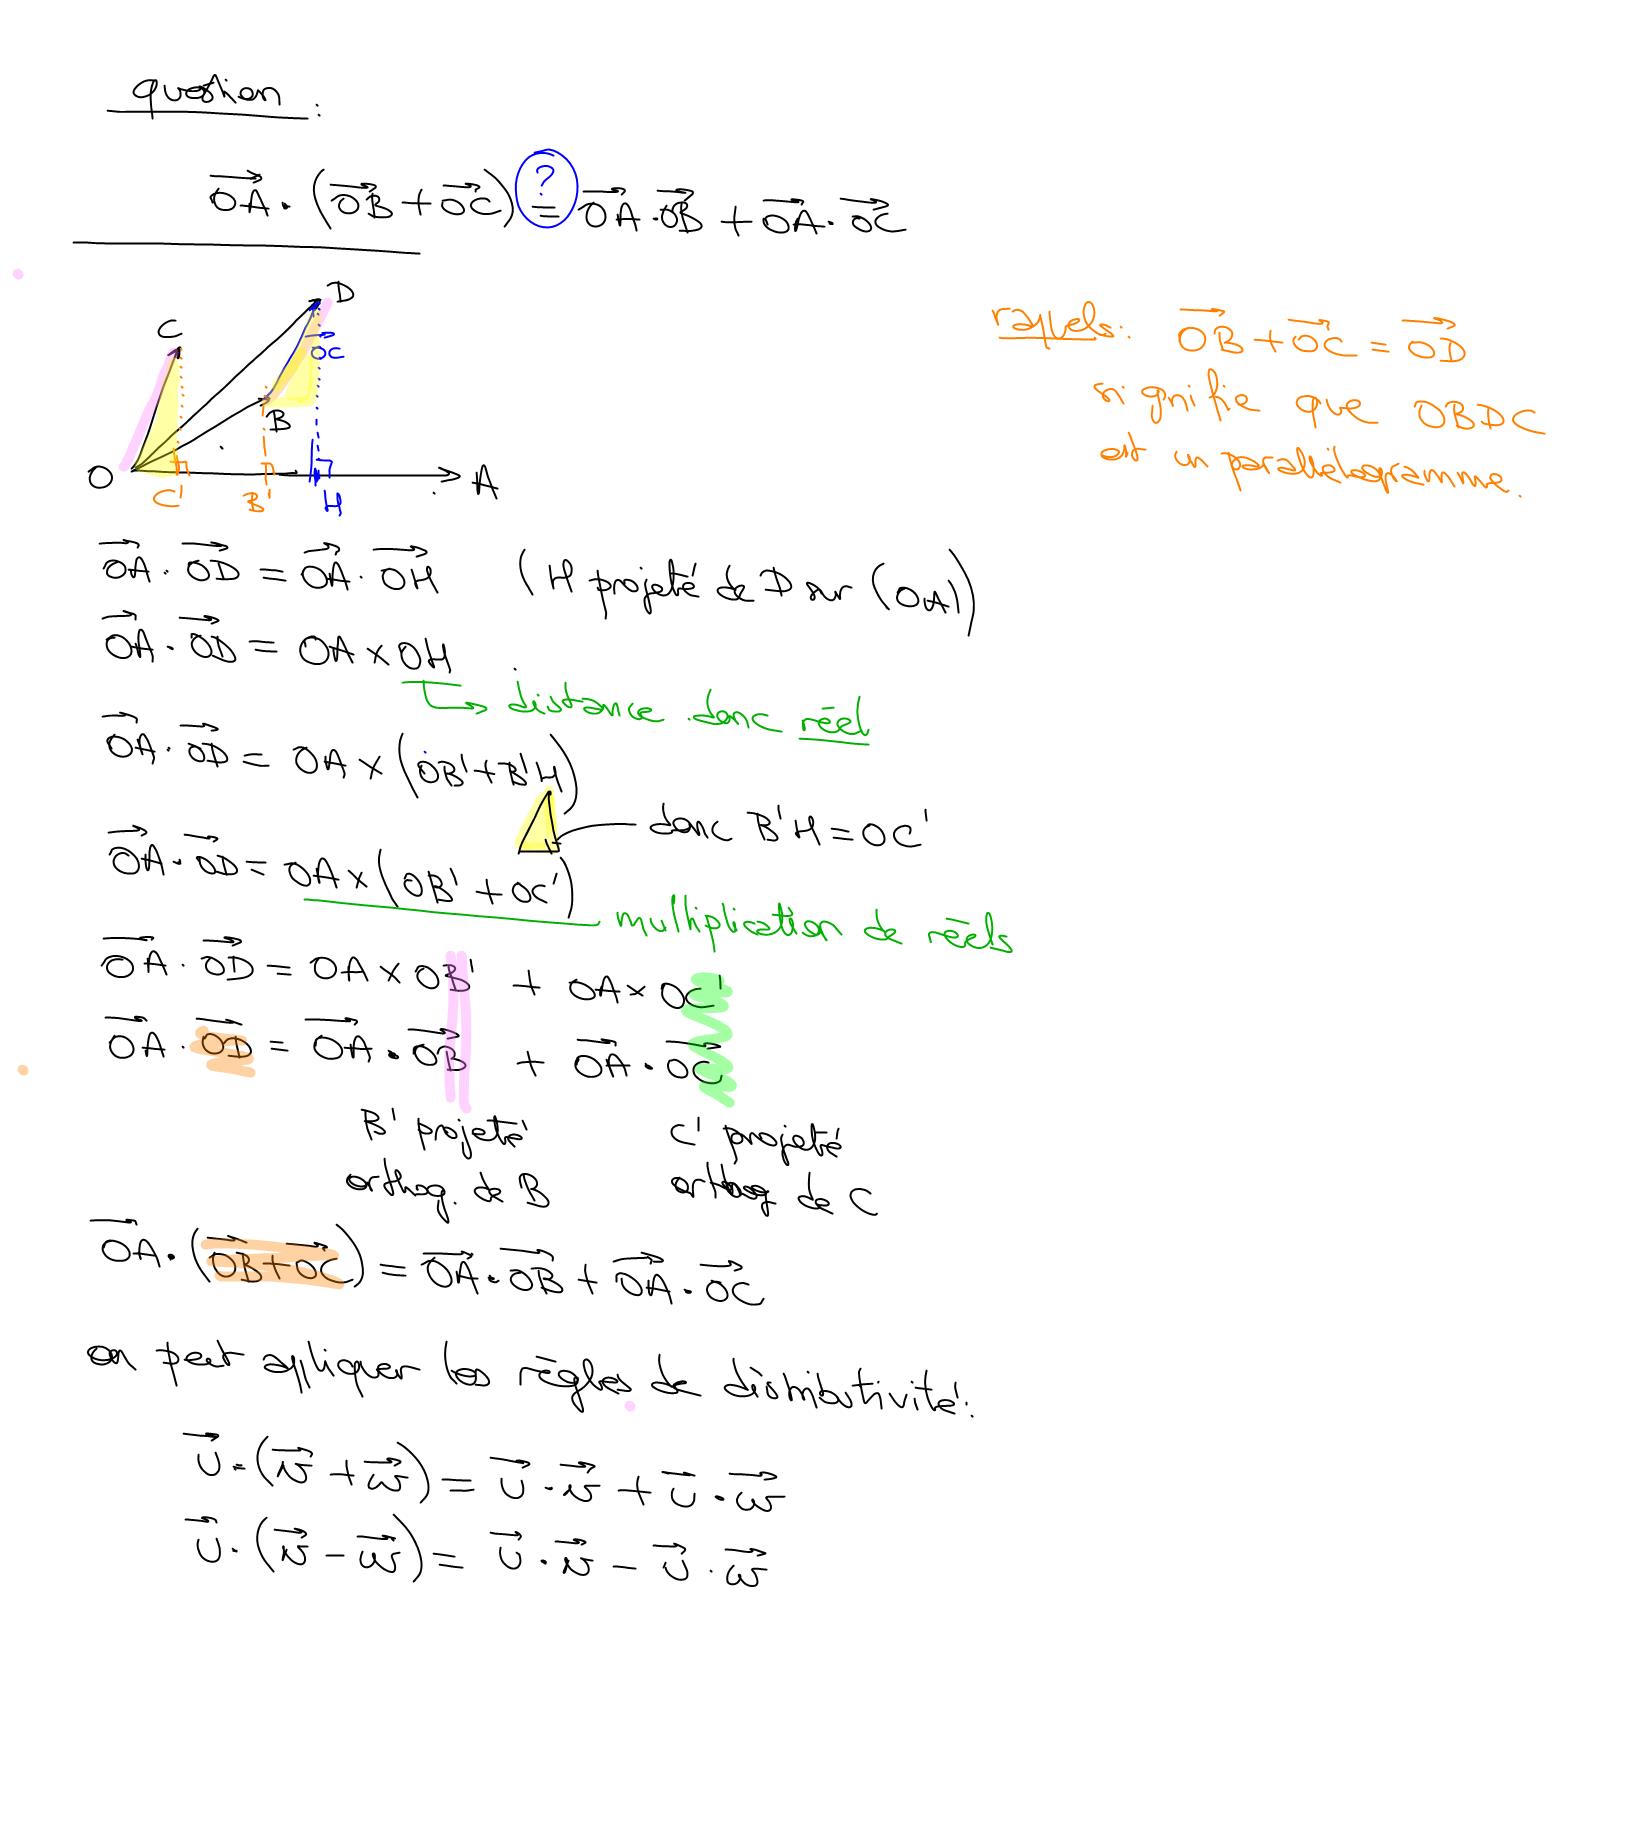 question :
$\overrightarrow{OA} \cdot (\overrightarrow{OB} + \overrightarrow{OC}) \overset{?}{=} \overrightarrow{OA} \cdot \overrightarrow{OB} + \overrightarrow{OA} \cdot \overrightarrow{OC}$
D
C
$\overrightarrow{OC}$
B
O
A
C'
B'
H
rappels : $\overrightarrow{OB} + \overrightarrow{OC} = \overrightarrow{OD}$
signifie que OBDC
est un parallélogramme.
$\overrightarrow{OA} \cdot \overrightarrow{OD} = \overrightarrow{OA} \cdot \overrightarrow{OH}$ (H projeté de D sur (OA))
$\overrightarrow{OA} \cdot \overrightarrow{OD} = OA \times OH$
↳ distance donc réel
$\overrightarrow{OA} \cdot \overrightarrow{OD} = OA \times (OB' + B'H)$
donc B'H = OC'
$\overrightarrow{OA} \cdot \overrightarrow{OD} = OA \times (OB' + OC')$
multiplication de réels
$\overrightarrow{OA} \cdot \overrightarrow{OD} = OA \times OB' + OA \times OC'$
$\overrightarrow{OA} \cdot \overrightarrow{OD} = \overrightarrow{OA} \cdot \overrightarrow{OB} + \overrightarrow{OA} \cdot \overrightarrow{OC}$
B' projeté
orthog. de B
C' projeté
orthog de C
$\overrightarrow{OA} \cdot (\overrightarrow{OB} + \overrightarrow{OC}) = \overrightarrow{OA} \cdot \overrightarrow{OB} + \overrightarrow{OA} \cdot \overrightarrow{OC}$
on peut appliquer les règles de distributivité :
$\vec{u} \cdot (\vec{v} + \vec{w}) = \vec{u} \cdot \vec{v} + \vec{u} \cdot \vec{w}$
$\vec{u} \cdot (\vec{v} - \vec{w}) = \vec{u} \cdot \vec{v} - \vec{u} \cdot \vec{w}$